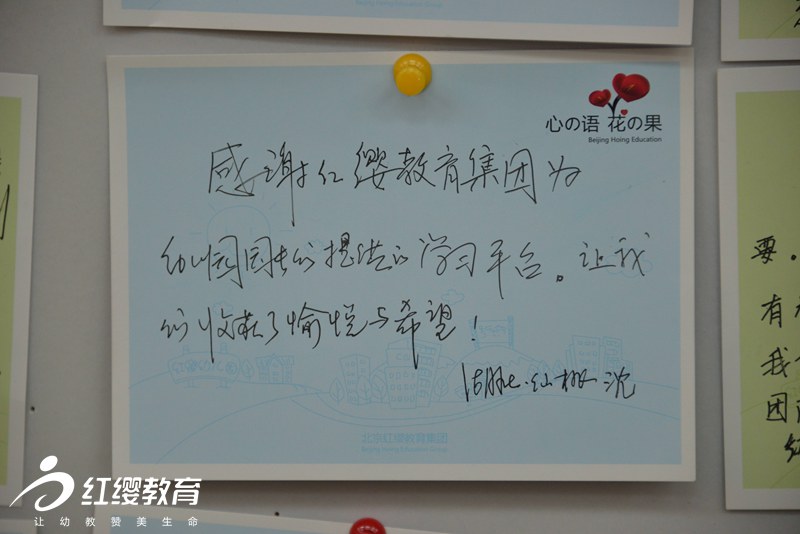 心の语 花の果
Beijing Hoing Education
感谢红缨教育集团为
幼儿园园长们提供的学习平台。让我
们收获了愉悦与希望！
湖北·仙桃 沈
北京红缨教育集团
要。
有
我
团
红缨教育
让幼教赞美生命